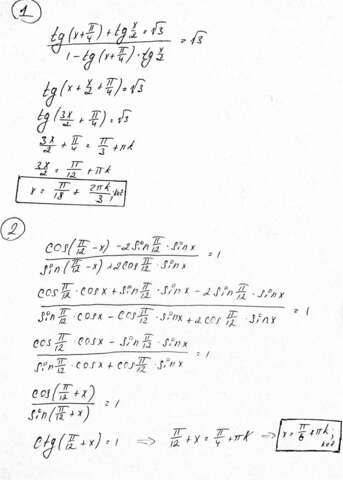 1
tg(x+π/4)+tg x/2 = √3
/ 1-tg(x+π/4)·tg x/2 = √3
tg(x+x/2+π/4)=√3
tg(3x/2+π/4)=√3
3x/2+π/4=π/3+πk
3x/2=π/12+πk
x=π/18+2πk/3; k∈Z
2
cos(π/12-x)-2sin π/12·sinx / sin(π/12-x)+2cos π/12·sinx =1
cos π/12·cosx+sin π/12·sinx-2sin π/12·sinx / sin π/12·cosx-cos π/12·sinx+2cos π/12·sinx =1
cos π/12·cosx-sin π/12·sinx / sin π/12·cosx+cos π/12·sinx =1
cos(π/12+x) / sin(π/12+x) =1
ctg(π/12+x)=1 ⇒ π/12+x=π/4+πk ⇒ x=π/6+πk; k∈Z